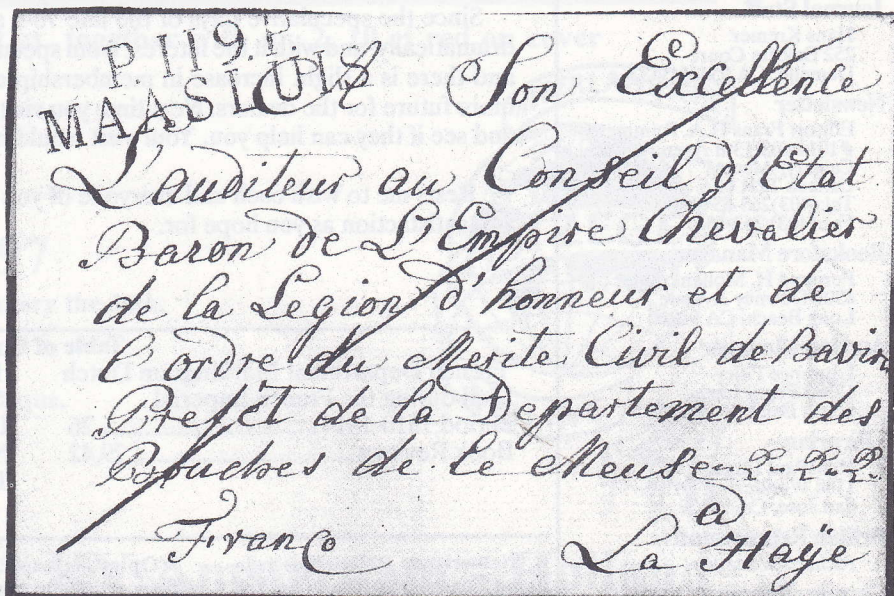 P.119.P.
MAASSLUIS
Son Excellence
L'auditeur au Conseil d'Etat
Baron de L'Empire Chevalier
de la Legion d'honneur et de
L'ordre du Merite Civil de
Prefét de la Departement des
Bouches de le Meuse
a
Franco La Haÿe